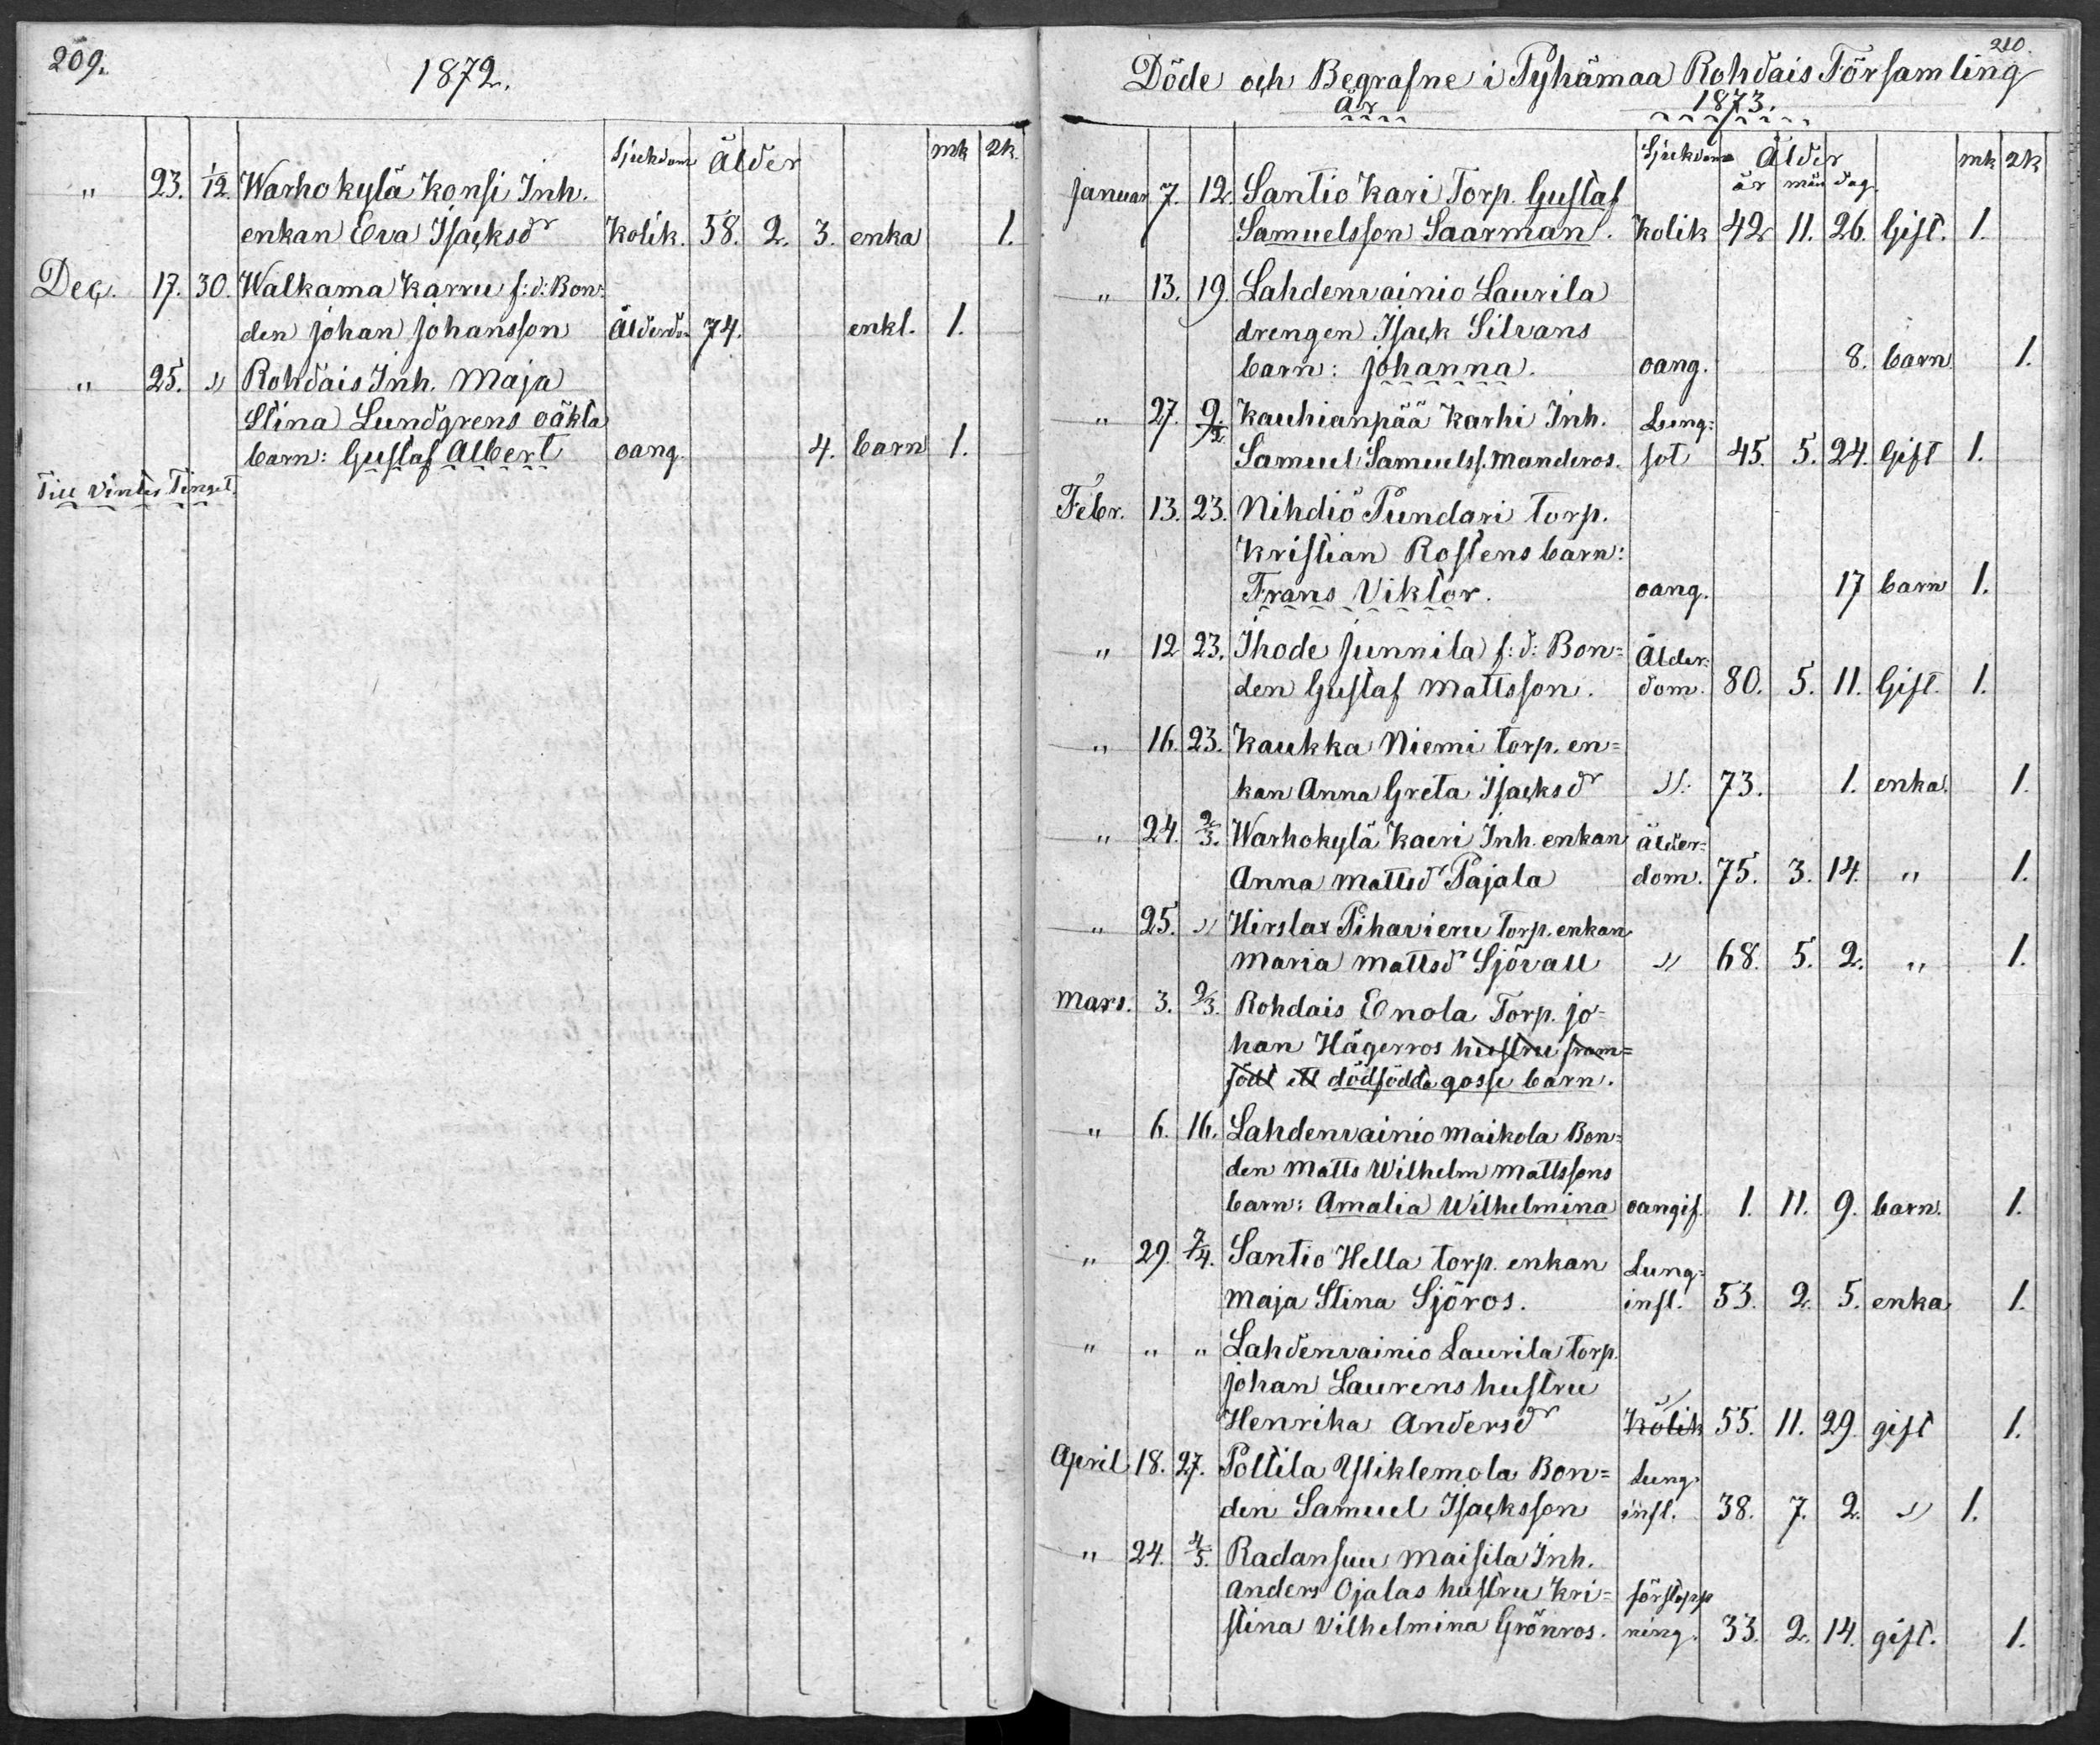 209.
1872.
Sjukdom Ålder mk qk.
" 23. 1/12. Warhokylä Konsi Inh.
enkan Eva Isacksdr Kolik. 58. 2. 3. enka 1.
Dec. 17. 30. Walkama Karru f: d: Bon=
den Johan Johansson Ålderdo 74. enkl. 1.
" 25. " Rohdais Inh. Maja
Stina Lundgrens oäkta
barn: Gustaf Albert oang. 4. barn 1.
Till Vinter Tinget.
210.
Döde och Begrafne i Pyhämaa Rohdais Församling
år 1873.
Sjukdom Ålder mk qk
år mån dag.
Januar 7. 12. Santio Kari Torp. Gustaf
Samuelsson Saarman. Kolik 42 11. 26. Gift. 1.
" 13. 19. Lahdenvainio Laurila
drengen Isack Silvans
barn: Johanna. oang. 8. barn 1.
" 27. 9/2. Kauhianpää Karhi Inh. Lung=
Samuel Samuelss. Manderos. sot 45. 5. 24. Gift 1.
Febr. 13. 23. Nihdiö Pundari torp.
Kristian Rostens barn:
Frans Viktor. oang. 17 barn 1.
" 12 23. Ihode Junnila f: d: Bon= Ålder=
den Gustaf Mattsson. dom. 80. 5. 11. Gift. 1.
" 16. 23. Kaukka Niemi torp. en=
kan Anna Greta Isacksdr ". 73. 1. enka. 1.
" 24. 2/3. Warhokylä Kaeri Inh. enkan ålder=
Anna Mattsdr Pajala dom. 75. 3. 14. " 1.
" 25. " Hirslax Pihavieru Torp. enkan
Maria Mattsdr Sjövall " 68. 5. 2. " 1.
Mars. 3. 9/3. Rohdais Enola Torp. Jo=
han Hägerros hustru fram=
födt ett dödfödda gosse barn.
" 6. 16. Lahdenvainio Maikola Bon=
den Matts Wilhelm Mattssons
barn: Amalia Wilhelmina oangif. 1. 11. 9. barn. 1.
" 29. 7/4. Santio Hella torp. enkan Lung=
Maja Stina Sjöros. infl. 53. 2. 5. enka 1.
" " " Lahdenvainio Laurila torp.
Johan Laurens hustru "
Henrika Andersdr Kolik 55. 11. 29. gift 1.
April 18. 27. Polttila Yliklemola Bon= Lung=
den Samuel Isacksson infl. 38. 7. 2. " 1.
" 24. 4/5. Radansuu Maisila Inh.
Anders Ojalas hustru Kri= förstopp
stina Vilhelmina Grönros. ning. 33. 2. 14. gift. 1.